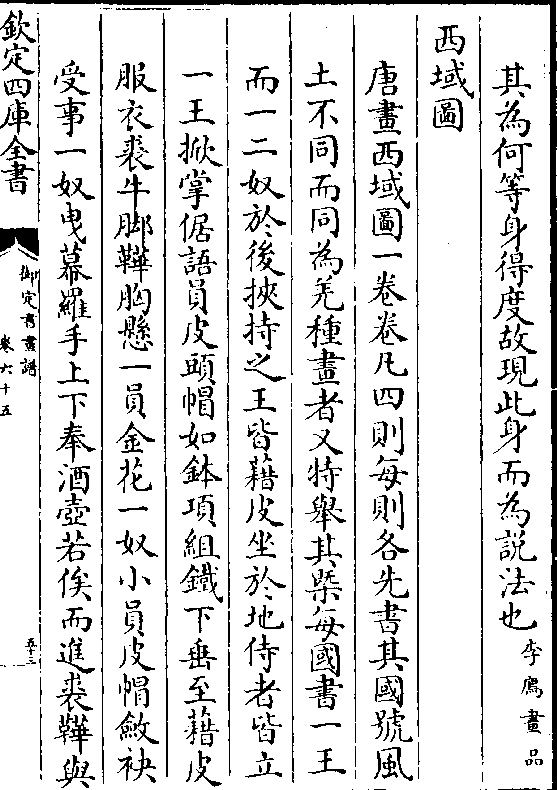 其為何等身得度故現此身而為說法也李廌畫品
西域圖
唐畫西域圖一卷卷凡四則每則各先書其國號風
土不同而同為羌種畫者又特舉其槩每國書一王
而一二奴於後挾持之王皆藉皮坐於地侍者皆立
一王掀掌倨語員皮頭帽如鉢項組鐵下垂至藉皮
服衣裘牛脚鞾胸懸一員金花一奴小員皮帽斂袂
受事一奴曳幕羅手上下奉酒壺若俟而進裘鞾與
欽定四庫全書
御定書畫譜
卷六十五
五十三